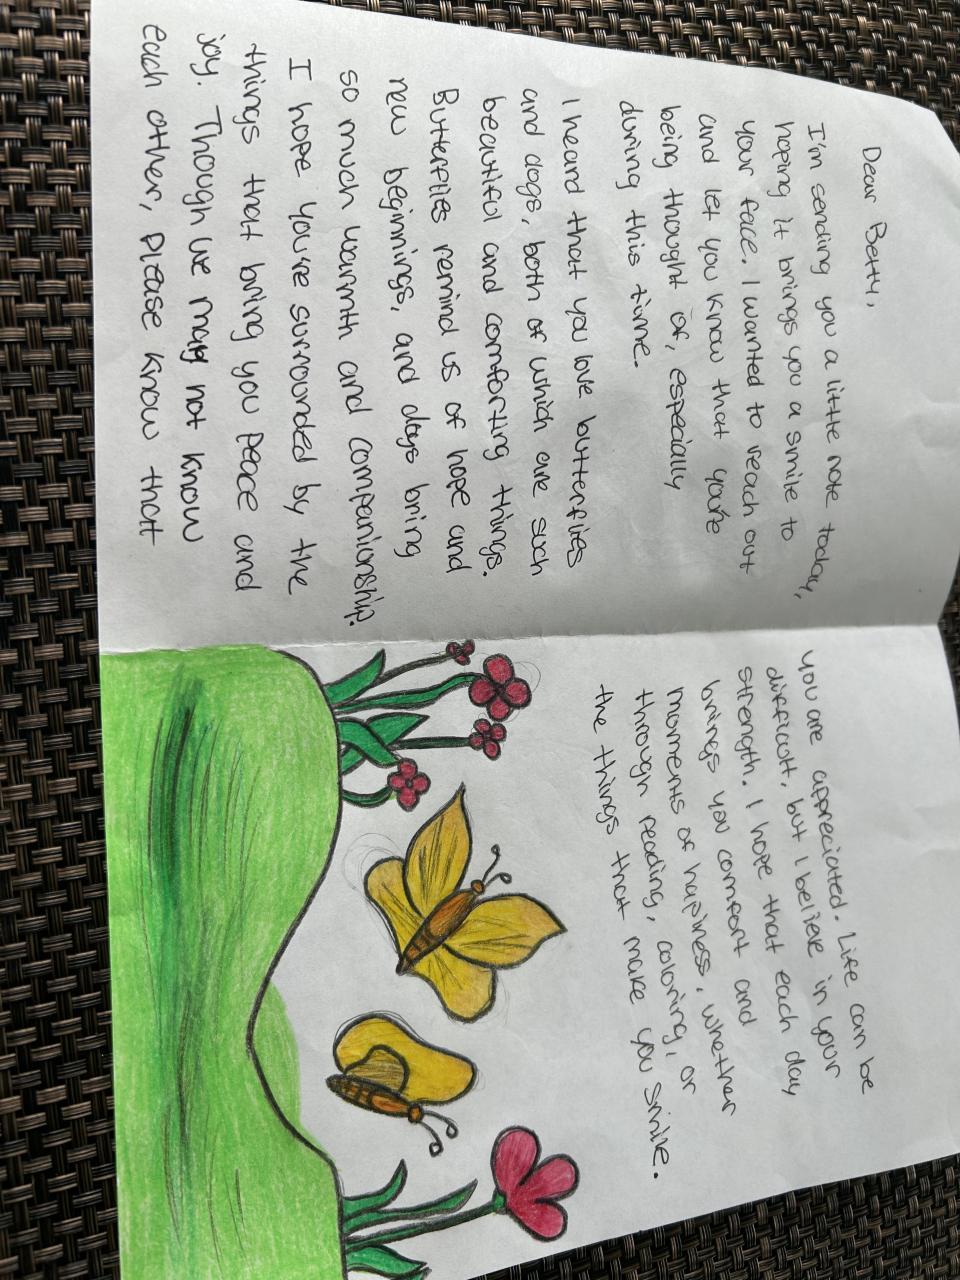 Dear Betty,
I'm sending you a little note today,
hoping it brings you a smile to
your face. I wanted to reach out
and let you know that you're
being thought of, especially
during this time.
I heard that you love butterflies
and dogs, both of which are such
beautiful and comforting things.
Butterflies remind us of hope and
new beginnings, and dogs bring
so much warmth and companionship.
I hope you're surrounded by the
things that bring you peace and
joy. Though we may not know
each other, please know that
you are appreciated. Life can be
difficult, but I believe in your
strength. I hope that each day
brings you comfort and
moments of happiness, whether
through reading, coloring, or
the things that make you smile.